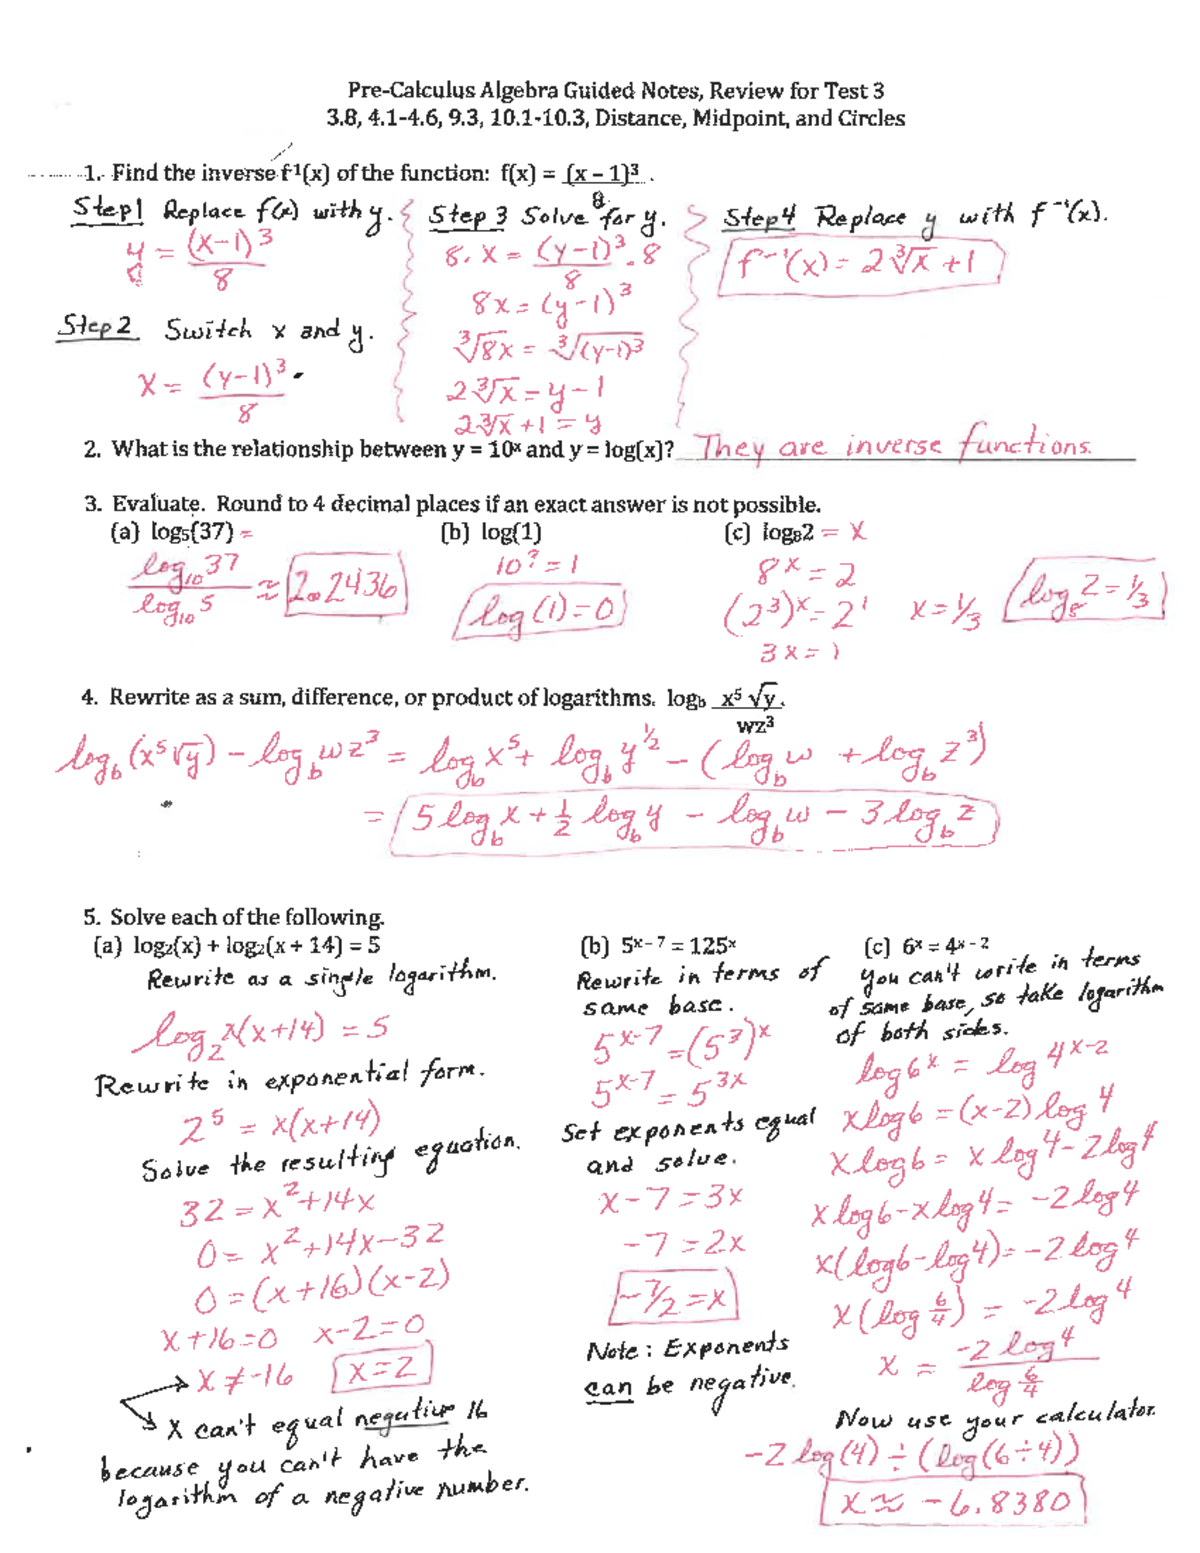 Pre-Calculus Algebra Guided Notes, Review for Test 3
3.8, 4.1-4.6, 9.3, 10.1-10.3, Distance, Midpoint, and Circles
1. Find the inverse f¹(x) of the function: f(x) = (x – 1)³ .
8
Step1 Replace f(x) with y.
y = (x-1)³
8
Step 2 Switch x and y.
x = (y-1)³
8
Step 3 Solve for y.
8. x = (y-1)³ . 8
8
8x = (y-1)³
³√8x = ³√(y-1)³
2³√x = y-1
2³√x +1 = y
Step4 Replace y with f⁻¹(x).
f⁻¹(x) = 2³√x +1
2. What is the relationship between y = 10ˣ and y = log(x)? They are inverse functions.
3. Evaluate. Round to 4 decimal places if an exact answer is not possible.
(a) log₅(37) =
log₁₀37
log₁₀5
≈ 2.2436
(b) log(1)
10^? = 1
log(1)=0
(c) log₈2 = x
8ˣ = 2
(2³)ˣ = 2¹
3x = 1
x = 1/3
log₈2 = 1/3
4. Rewrite as a sum, difference, or product of logarithms. log_b x⁵ √y .
wz³
log_b (x⁵√y) - log_b wz³ = log_b x⁵ + log_b y^½ - (log_b w + log_b z³)
= 5 log_b x + ½ log_b y - log_b w - 3 log_b z
5. Solve each of the following.
(a) log₂(x) + log₂(x + 14) = 5
Rewrite as a single logarithm.
log₂x(x+14) = 5
Rewrite in exponential form.
2⁵ = x(x+14)
Solve the resulting equation.
32 = x²+14x
0 = x²+14x-32
0 = (x+16)(x-2)
x+16=0 x-2=0
x ≠ -16 x=2
x can't equal negative 16
because you can't have the
logarithm of a negative number.
(b) 5ˣ⁻⁷ = 125ˣ
Rewrite in terms of
same base.
5ˣ⁻⁷ = (5³)ˣ
5ˣ⁻⁷ = 5³ˣ
Set exponents equal
and solve.
x-7 = 3x
-7 = 2x
-7/2 = x
Note: Exponents
can be negative.
(c) 6ˣ = 4ˣ⁻²
you can't write in terms
of same base, so take logarithm
of both sides.
log6ˣ = log 4ˣ⁻²
xlog6 = (x-2)log 4
xlog6 = x log4-2log4
xlog6-xlog4 = -2log4
x(log6-log4) = -2 log4
x(log 6/4) = -2 log 4
x = -2 log4
log 6/4
Now use your calculator.
-2 log(4) ÷ (log(6÷4))
x ≈ -6.8380